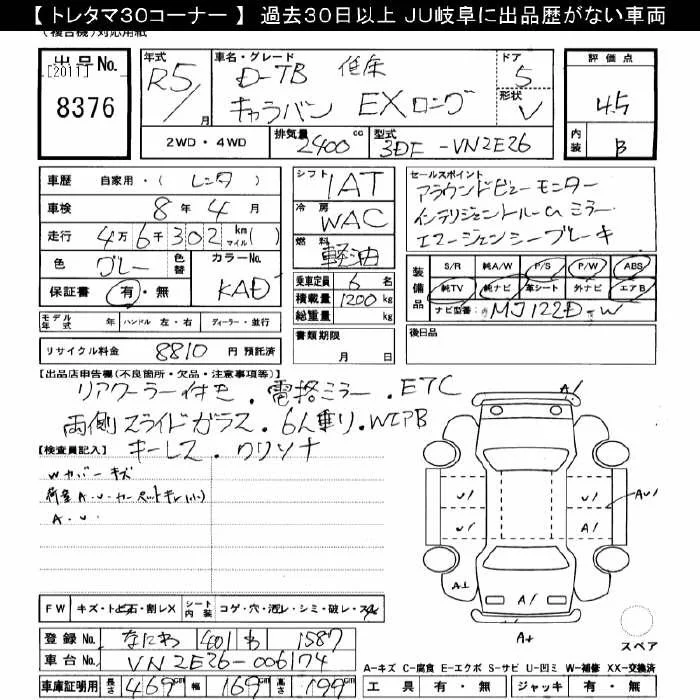 【 トレタマ30コーナー 】 過去30日以上 JU岐阜に出品歴がない車両
(複合機)対応用紙
出品No.
[2011]
8376
年式
R5/
月
車名・グレード
D-TB 低床
キャラバン EXロング
ドア
5
形状
V
評価点
4.5
内装
B
2WD・4WD
排気量
2400 cc
型式
3DF-VN2E26
車歴 自家用・( レンタ )
車検 8年4月
走行 4万6千302 km マイル( )
色 グレー 色替
カラーNo. KAD
保証書 有・無
モデル年式 年 ハンドル 左・右 ディーラー・並行
リサイクル料金 8810 円 預託済
シフト 1AT
冷房 WAC
燃料 軽油
乗車定員 6 名
積載量 1200 kg
総重量 kg
書類期限
月 日
セールスポイント
アラウンドビューモニター
インテリジェントルームミラー
エマージェンシーブレーキ
装備品
S/R 純A/W P/S P/W ABS
純TV 純ナビ 革シート 外ナビ エアB
ナビ型番: MJ122D-W
後日品
【出品店申告欄(不良箇所・欠品・注意事項等)】
リアクーラー付き．電格ミラー．ETC
両側スライドガラス．6人乗り．WエアB
キーレス．クリソナ
【検査員記入】
Wカバーキズ
荷室A.U.カーペットキレ(小)
A．U．
A/
U/ U/ AU/
U/ A/
A± A/
A+
スペア
FW キズ・トビ石・割レX シート内装 コゲ・穴・汚レ・シミ・破レ・スレ
登録No. なにわ 401 わ 1587
車台No. VN2E26-006174
車庫証明用 長さ 469cm 幅 169cm 高さ 199cm
A-キズ C-腐食 E-エクボ S-サビ U-凹ミ W-補修 XX-交換済
工具 有・無 ジャッキ 有・無